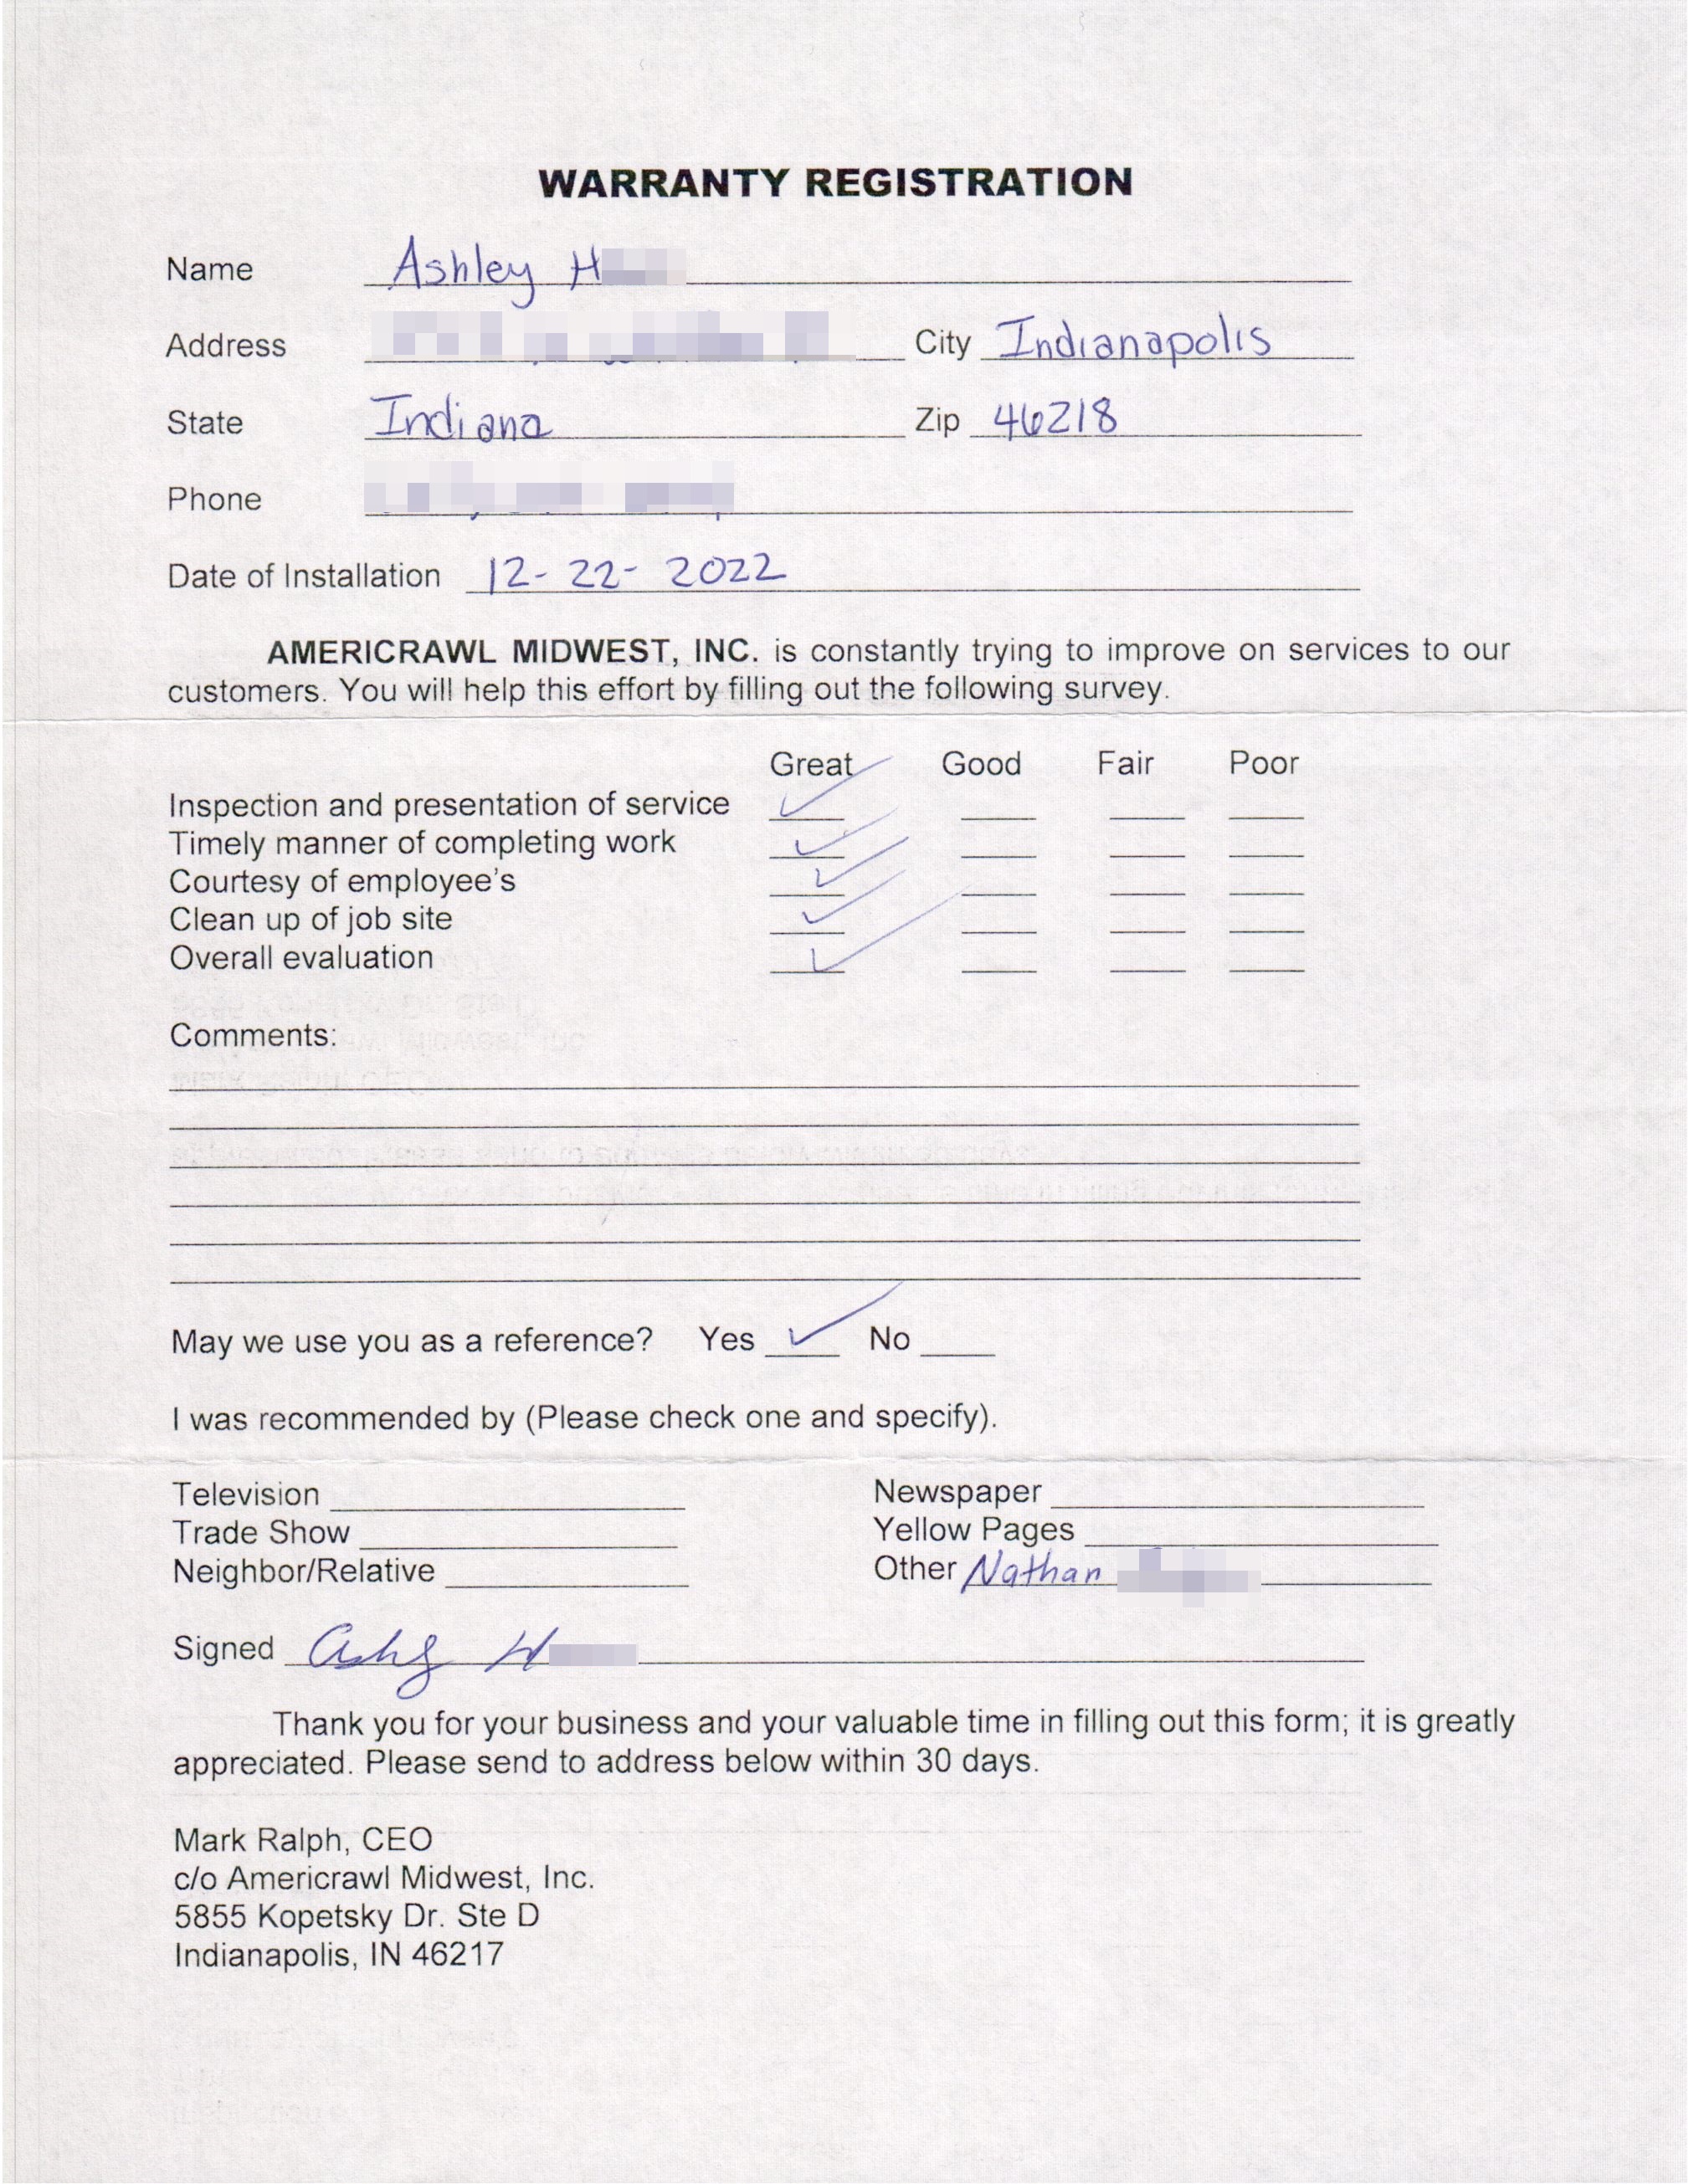 WARRANTY REGISTRATION
Name Ashley H
Address City Indianapolis
State Indiana Zip 46218
Phone
Date of Installation 12-22-2022
AMERICRAWL MIDWEST, INC. is constantly trying to improve on services to our
customers. You will help this effort by filling out the following survey.
Great Good Fair Poor
Inspection and presentation of service ✓
Timely manner of completing work ✓
Courtesy of employee's ✓
Clean up of job site ✓
Overall evaluation ✓
Comments:
May we use you as a reference? Yes ✓ No
I was recommended by (Please check one and specify).
Television Newspaper
Trade Show Yellow Pages
Neighbor/Relative Other Nathan
Signed Ashley H
Thank you for your business and your valuable time in filling out this form; it is greatly
appreciated. Please send to address below within 30 days.
Mark Ralph, CEO
c/o Americrawl Midwest, Inc.
5855 Kopetsky Dr. Ste D
Indianapolis, IN 46217